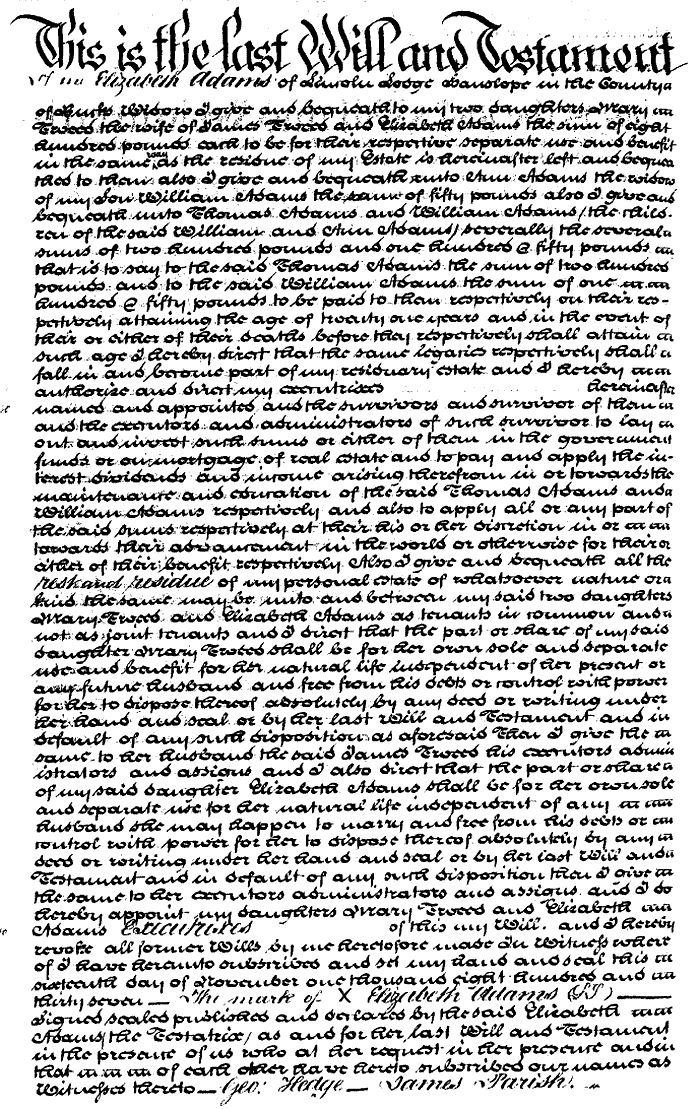 This is the last Will and Testament
Of me Elizabeth Adams of Lincoln Lodge Hanslope in the County
of Bucks Widow I give and bequeath to my two daughters Mary
Treed the wife of James Treed and Elizabeth Adams the sum of eight
hundred pounds each to be for their respective separate use and benefit
in the same as the residue of my Estate is hereinafter left and bequea
thed to them also I give and bequeath unto Ann Adams the widow
of my Son William Adams the sum of fifty pounds also I give and
bequeath unto Thomas Adams and William Adams (the child-
ren of the said William and Ann Adams) severally the several
sums of two hundred pounds and one hundred & fifty pounds
that is to say to the said Thomas Adams the sum of two hundred
pounds and to the said William Adams the sum of one
hundred & fifty pounds to be paid to them respectively on their res-
pectively attaining the age of twenty one years and in the event of
their or either of their deaths before they respectively shall attain
such age I hereby direct that the same legacies respectively shall
fall in and become part of my residuary estate and I hereby
authorize and direct my executrixes hereinafter
named and appointed and the survivors and survivor of them
and the executors and administrators of such survivor to lay
out and invest such sums or either of them in the government
funds or on mortgage of real estate and to pay and apply the in-
terest dividends and income arising therefrom in or towards the
maintenance and education of the said Thomas Adams and
William Adams respectively and also to apply all or any part of
the said sums respectively at their his or her discretion in or
towards their advancement in the world or otherwise for their or
either of their benefit respectively Also I give and bequeath all the
rest and residue of my personal estate of whatsoever nature or
kind the same may be unto and between my said two daughters
Mary Treed and Elizabeth Adams as tenants in common and
not as joint tenants and I direct that the part or share of my said
daughter Mary Treed shall be for her own sole and separate
use and benefit for her natural life independent of her present or
any future husband and free from his debts or control with power
for her to dispose thereof absolutely by any deed or writing under
her hand and seal or by her last Will and Testament and in
default of any such disposition as aforesaid Then I give the
same to her husband the said James Treed his executors admin
istrators and assigns and I also direct that the part or share
of my said daughter Elizabeth Adams shall be for her own sole
and separate use for her natural life independent of any
husband she may happen to marry and free from his debts or
control with power for her to dispose thereof absolutely by any
deed or writing under her hand and seal or by her last Will and
Testament and in default of any such disposition then I give
the same to her executors administrators and assigns and I do
hereby appoint my daughters Mary Treed and Elizabeth
Adams Executrixes of this my Will. and I hereby
revoke all former Wills by me heretofore made In Witness where
of I have hereunto subscribed and set my hand and seal this
sixteenth day of November one thousand eight hundred and
thirty seven — The mark of X Elizabeth Adams (LS) —
Signed sealed published and declared by the said Elizabeth
Adams (the Testatrix) as and for her last Will and Testament
in the presence of us who at her request in her presence and in
that of each other have hereto subscribed our names as
Witnesses thereto — Geo: Hedge — James Parish.